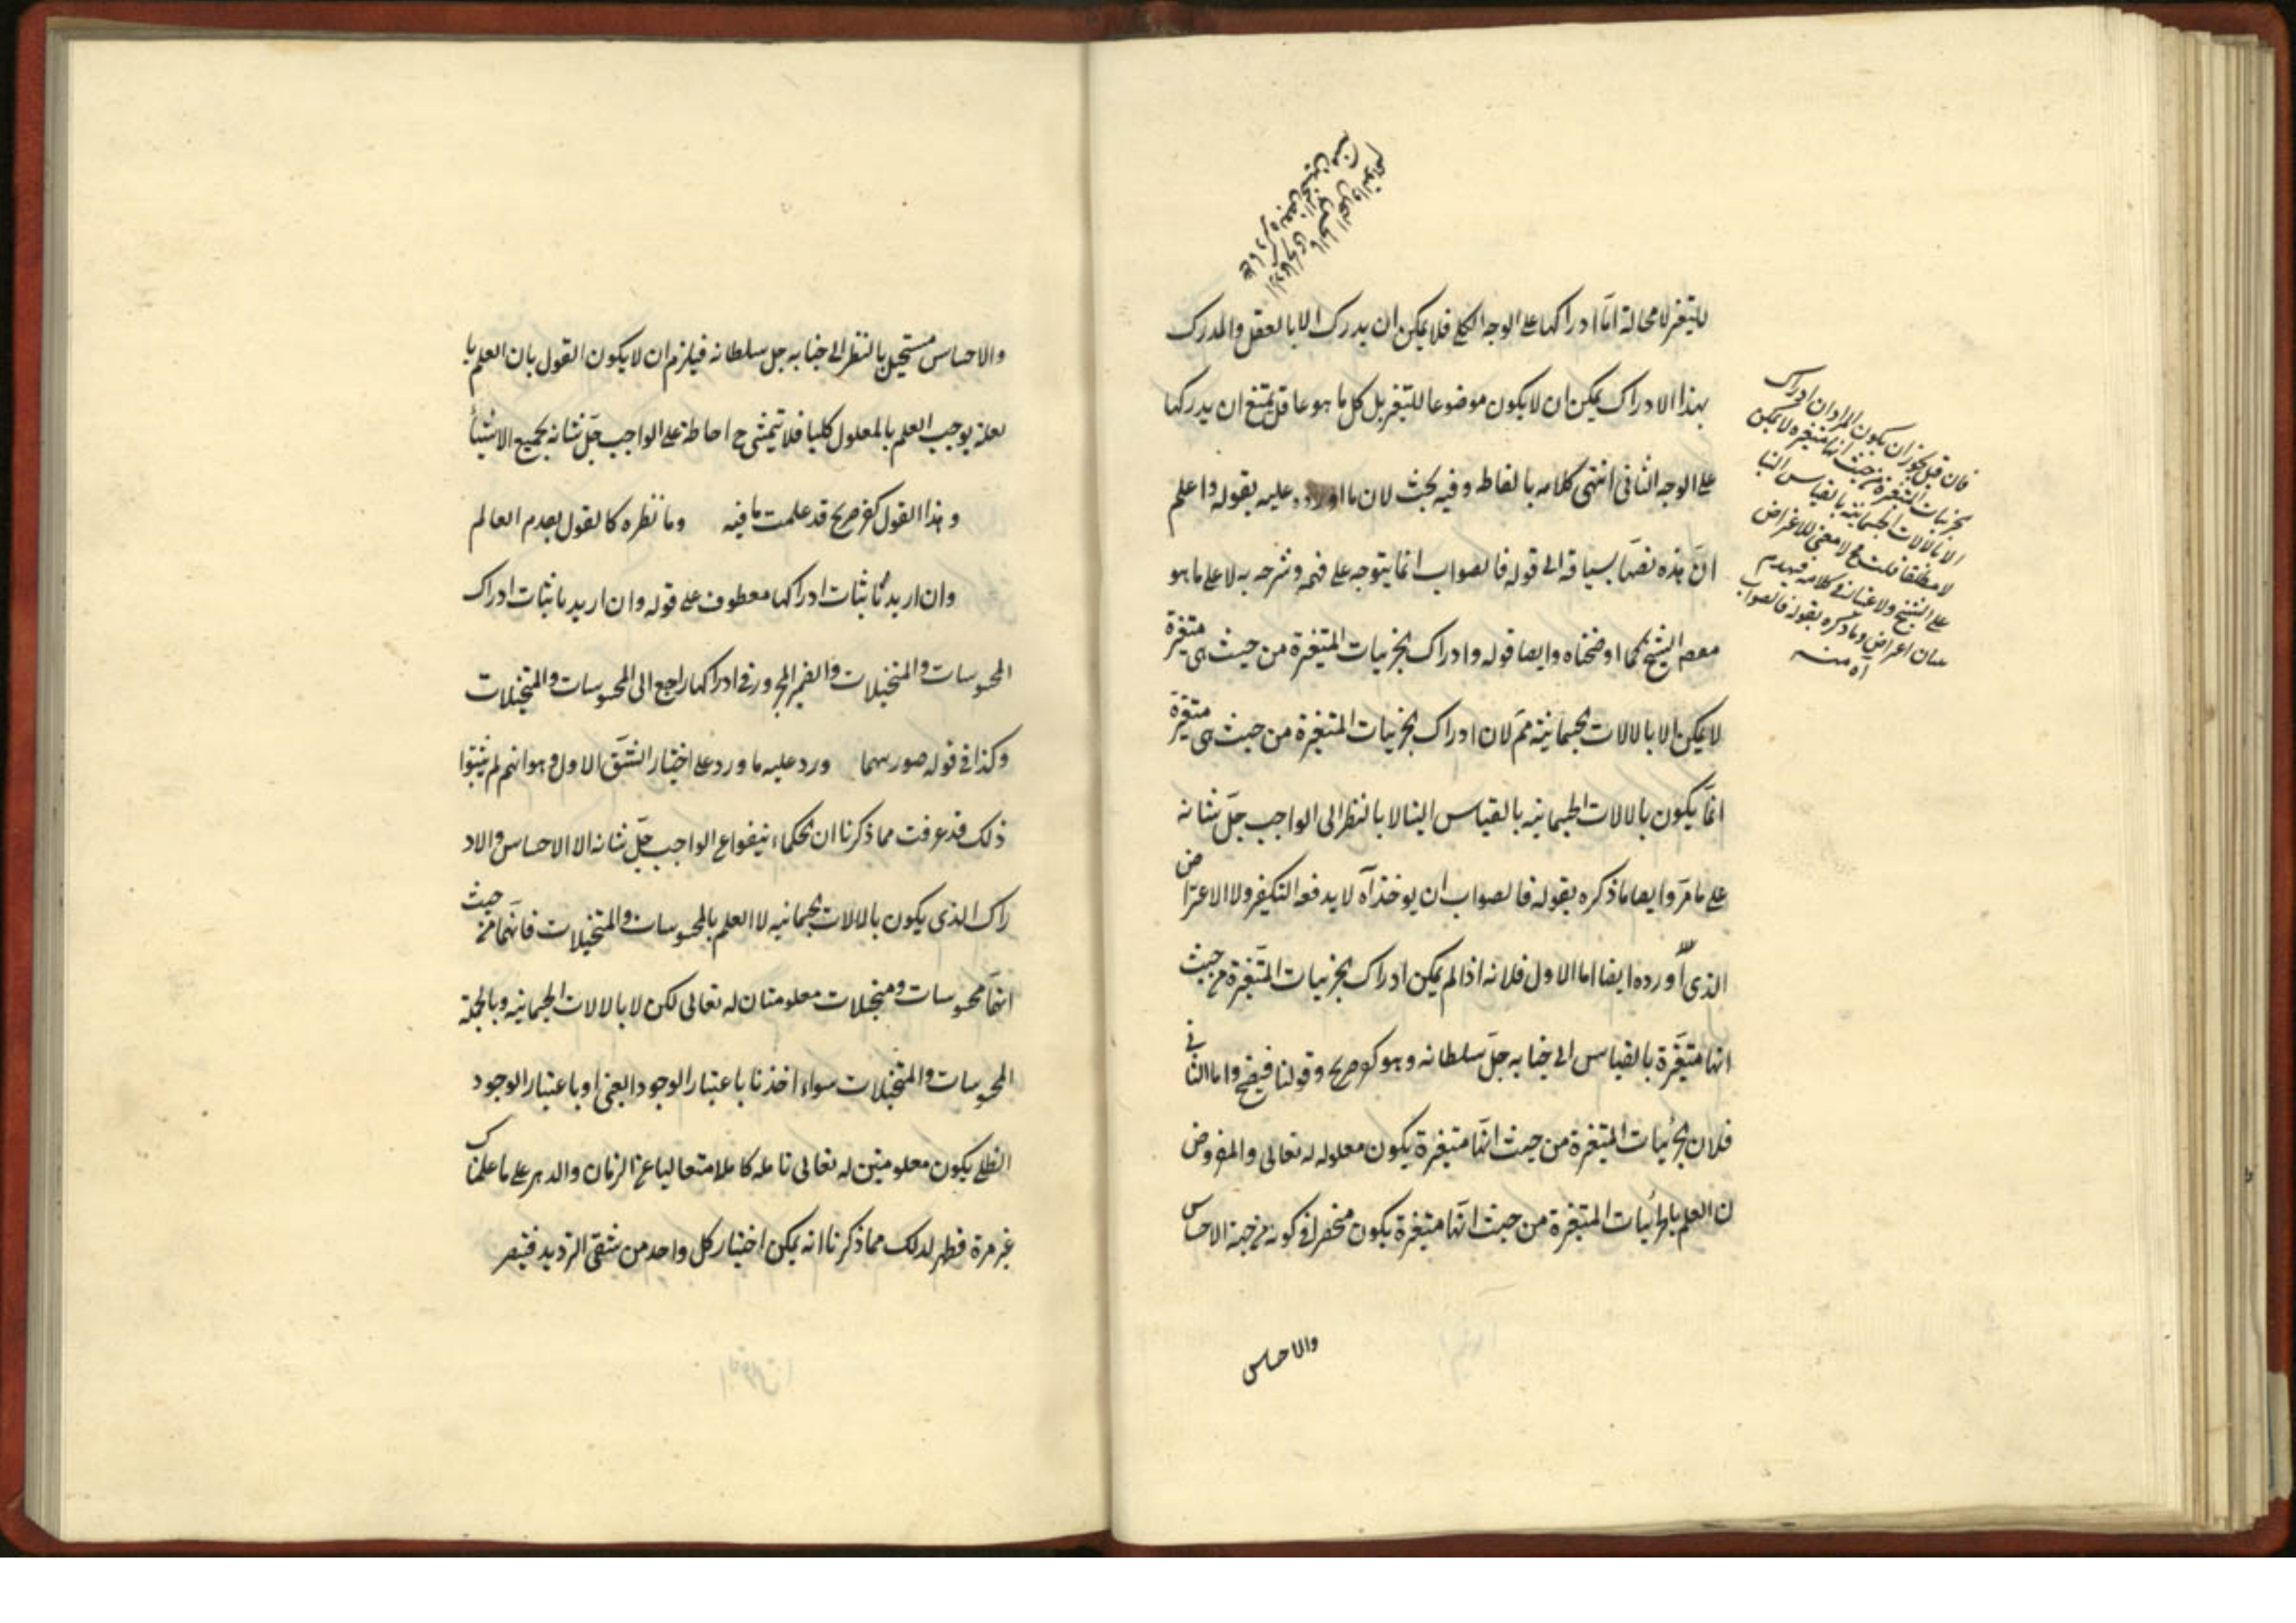 للتغير لا محالة امّا ادراكها على الوجه الكلي فلا يمكن ان يدرك الا بالعقل والمدرك
بهذا الادراك يمكن ان لا يكون موضوعا للتغير بل كل ما هو عاقل يمتنع ان يدركها
على الوجه الثانى انتهى كلامه بالفاظه وفيه بحث لان ما اورد عليه بقوله واعلم
انّ هذه بسياقه الى قوله فالصواب انما يتوجه على فهمه وشرحه به لا على ما هو
الشيخ كما اوضحناه وايضا قوله وادراك الجزئيات المتغيرة من حيث هى متغيرة
لا يمكن الا بالالات الجسمانية مم لان ادراك الجزئيات المتغيرة من حيث هى متغيرة
انمّا يكون بالالات الجسمانيه بالقياس الينا لا بالنظر الى الواجب جلّ شانه
على ما مرّ وايضا ما ذكره بقوله فالصواب ان يوخذ آه لا يدفع التكفير ولا الاعتراض
الذى اورده ايضا اما الاول فلانه اذا لم يمكن ادراك الجزئيات المتغيرة من حيث
انها متغيّرة بالقياس الى جنابه جلّ سلطانه وهو كفر صريح وقولنا فيضح واما الثانى
فلان الجزئيات المتغيرة من حيث انها متغيرة يكون معلوله له تعالى والمفروض
ن العلم بالجزئيات المتغيرة من حيث انّها متغيرة يكون منحصرا فى كونه من جهة الاحساس
والاحساس
فان قيل يجوز ان يكون المراد ان ادراك
الجزئيات المتغيرة من حيث انها متغيرة لا يمكن
الا بالالات الجسمانية بالقياس الينا
لا مطلقا قلت فح لا معنى للاعتراض
على الشيخ ولا غبار فى كلامه فينهدم
اعتراض وما ذكره بقوله فالصواب
آه منه
والاحساس مستحيل بالنظر الى جنابه جل سلطانه فيلزم ان لا يكون القول بان العلم با
لعلة يوجب العلم بالمعلول كليا فلا يتمشى ح احاطة علم الواجب جلّ شانه بجميع الاشياء
وهذا القول كفر صريح قد علمت ما فيه وما نظره كالقول بعدم العالم
وان اريد باثبات ادراكها معطوف على قوله وان اريد باثبات ادراك
المحسوسات والمتخيلات والضمير المجرور فى ادراكها راجع الى المحسوسات والمتخيلات
وكذا فى قوله صورهما ورد عليه ما ورد على اختيار الشق الاول وهو انهم لم يثبتوا
ذلك قد عرفت مما ذكرنا ان الحكماء ينفوا عن الواجب جلّ شانه الا الاحساس والاد
راك الذى يكون بالالات الجسمانيه لا العلم بالمحسوسات والمتخيلات فانهما من حيث
انهما محسوسات ومتخيلات معلومتان له تعالى لكن لا بالالات الجسمانيه وبالجملة
المحسوسات والمتخيلات سواء اخذتا باعتبار الوجود العينى او باعتبار الوجود
الظلى يكون معلومتين له تعالى كاملا متعاليا عن الزمان والدهر على ما علمناك
غير مرة فظهر لك مما ذكرنا انه يمكن اختيار كل واحد من شقى الترديد فتبصر